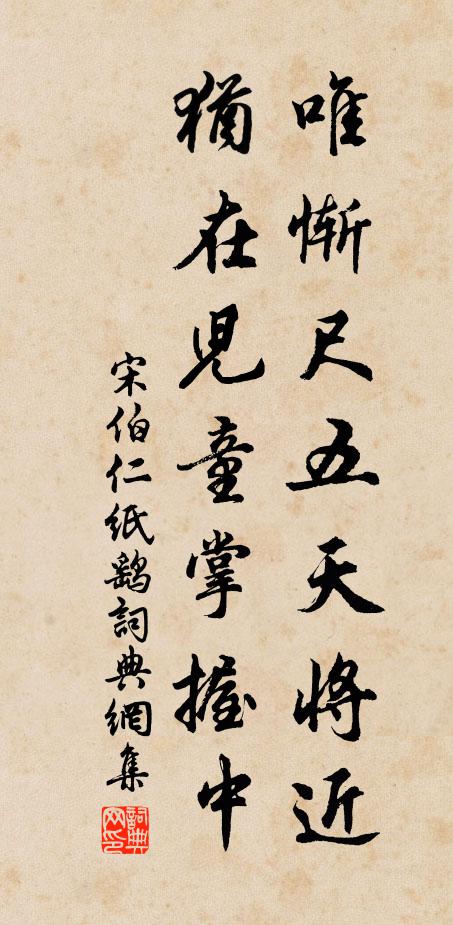 唯慚尺五天將近
猶在兒童掌握中
宋伯仁紙鷂詞典網集
詞典
网印